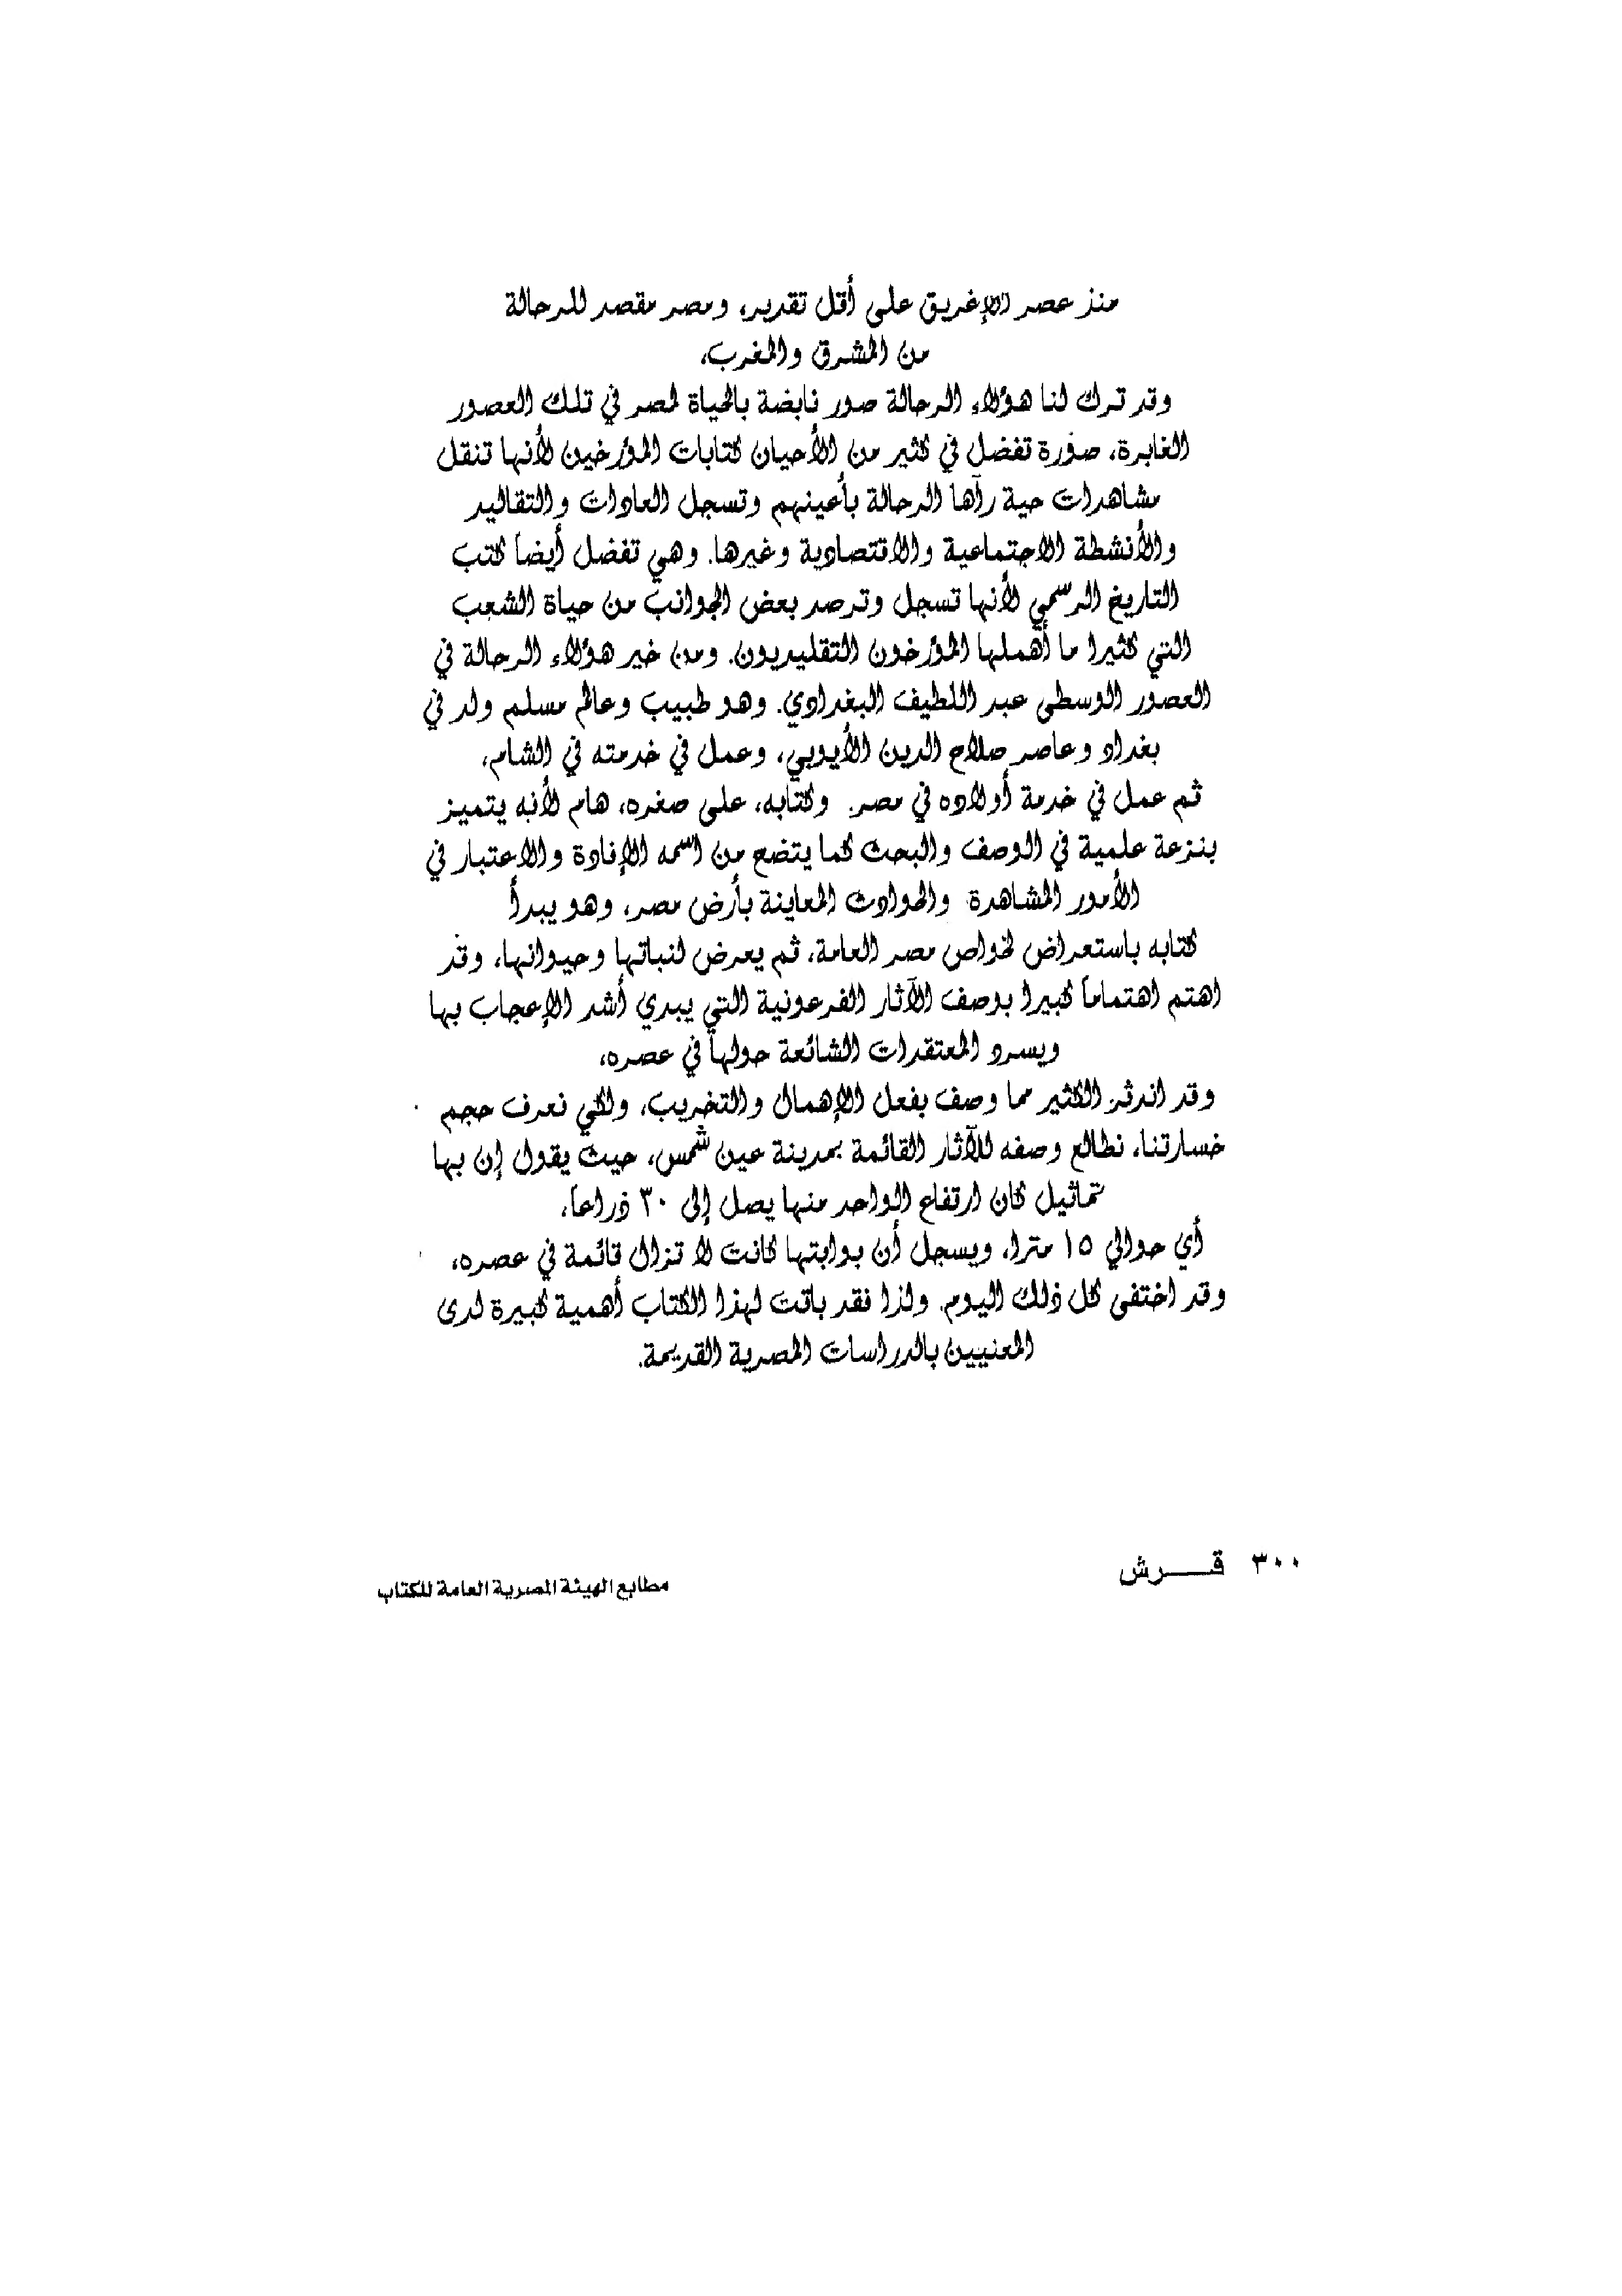 منذ عصر الإغريق على أقل تقدير، ومصر مقصد للرحالة
من المشرق والمغرب،
وقد ترك لنا هؤلاء الرحالة صور نابضة بالحياة لمصر في تلك العصور
الغابرة، صورة تفضل في كثير من الأحيان كتابات المؤرخين لأنها تنقل
مشاهدات حية رآها الرحالة بأعينهم وتسجل العادات والتقاليد
والأنشطة الاجتماعية والاقتصادية وغيرها. وهي تفضل أيضاً كتب
التاريخ الرسمي لأنها تسجل وترصد بعض الجوانب من حياة الشعب
التي كثيرا ما أهملها المؤرخون التقليديون. ومن خير هؤلاء الرحالة في
العصور الوسطى عبد اللطيف البغدادي. وهو طبيب وعالم مسلم ولد في
بغداد وعاصر صلاح الدين الأيوبي، وعمل في خدمته في الشام،
ثم عمل في خدمة أولاده في مصر. وكتابه، على صغره، هام لأنه يتميز
بنزعة علمية في الوصف والبحث كما يتضح من اسمه الإفادة والاعتبار في
الأمور المشاهدة والحوادث المعاينة بأرض مصر، وهو يبدأ
كتابه باستعراض لخواص مصر العامة، ثم يعرض لنباتها وحيوانها، وقد
اهتم اهتماماً كبيرا بوصف الآثار الفرعونية التي يبدي أشد الإعجاب بها
ويسرد المعتقدات الشائعة حولها في عصره،
وقد اندثر الكثير مما وصف بفعل الإهمال والتخريب، ولكي نعرف حجم
خسارتنا، نطالع وصفه للآثار القائمة بمدينة عين شمس، حيث يقول إن بها
تماثيل كان ارتفاع الواحد منها يصل إلى ٣٠ ذراعاً،
أي حوالي ١٥ مترا، ويسجل أن بوابتها كانت لا تزال قائمة في عصره،
وقد اختفى كل ذلك اليوم. ولذا فقد باتت لهذا الكتاب أهمية كبيرة لدى
المعنيين بالدراسات المصرية القديمة.
٣٠٠ قــرش
مطابع الهيئة المصرية العامة للكتاب